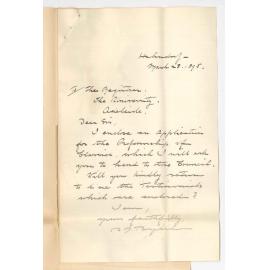 Hahndorf
March 28. 1895.
To The Registrar,
The University,
Adelaide.
Dear Sir,
I enclose an application
for the Professorship of
Classics which I will ask
you to hand to the Council.
Will you kindly return
to me the Testimonials
which are enclosed?
I am,
yours faithfully,